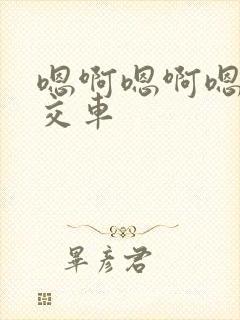 嗯啊嗯啊嗯
交车
畢彦君